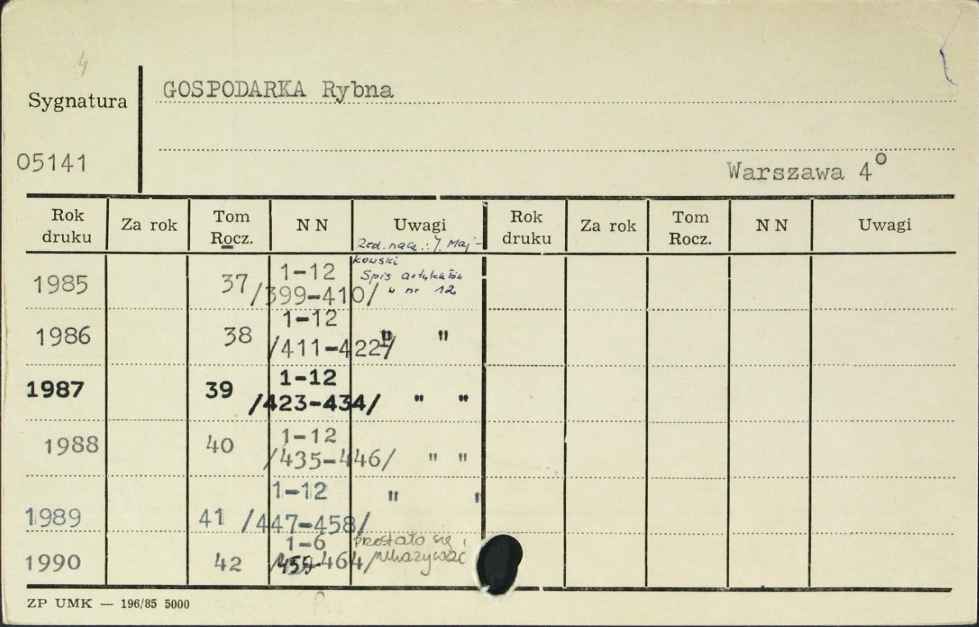 4
Sygnatura
GOSPODARKA Rybna
05141
Warszawa 4°
Rok druku Za rok Tom Rocz. N N Uwagi Rok druku Za rok Tom Rocz. N N Uwagi
Red. nacz.: J. Maj-
kowski
1985 37 1-12 Spis artykułów
/399-410/ w nr 12
1986 38 1-12
/411-422/ " "
1987 39 1-12
/423-434/ " "
1988 40 1-12
/435-446/ " "
1-12 " "
1989 41 /447-458/
1-6 przestało się
1990 42 /459-464/ ukazywać
ZP UMK — 196/85 5000